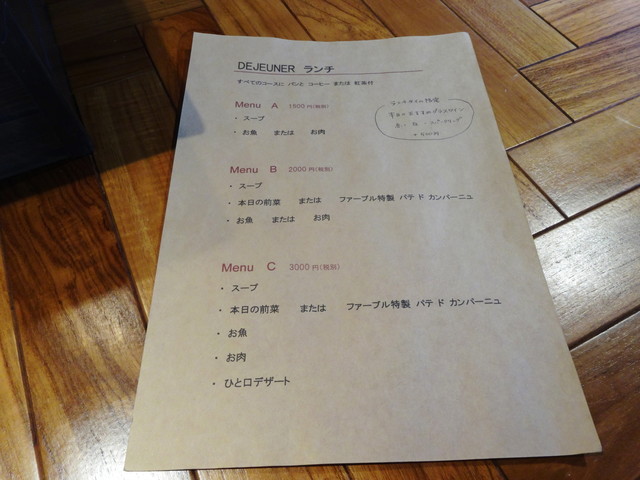 DEJEUNER ランチ
すべてのコースに パンと コーヒー または 紅茶付
Menu A 1500円(税別)
・ スープ
・ お魚 または お肉
ランチタイム限定
本日のおすすめグラスワイン
赤・白・スパークリング
Menu B 2000円(税別)
・ スープ
・ 本日の前菜 または ファーブル特製 パテ ド カンパーニュ
・ お魚 または お肉
Menu C 3000円(税別)
・ スープ
・ 本日の前菜 または ファーブル特製 パテ ド カンパーニュ
・ お魚
・ お肉
・ ひと口デザート